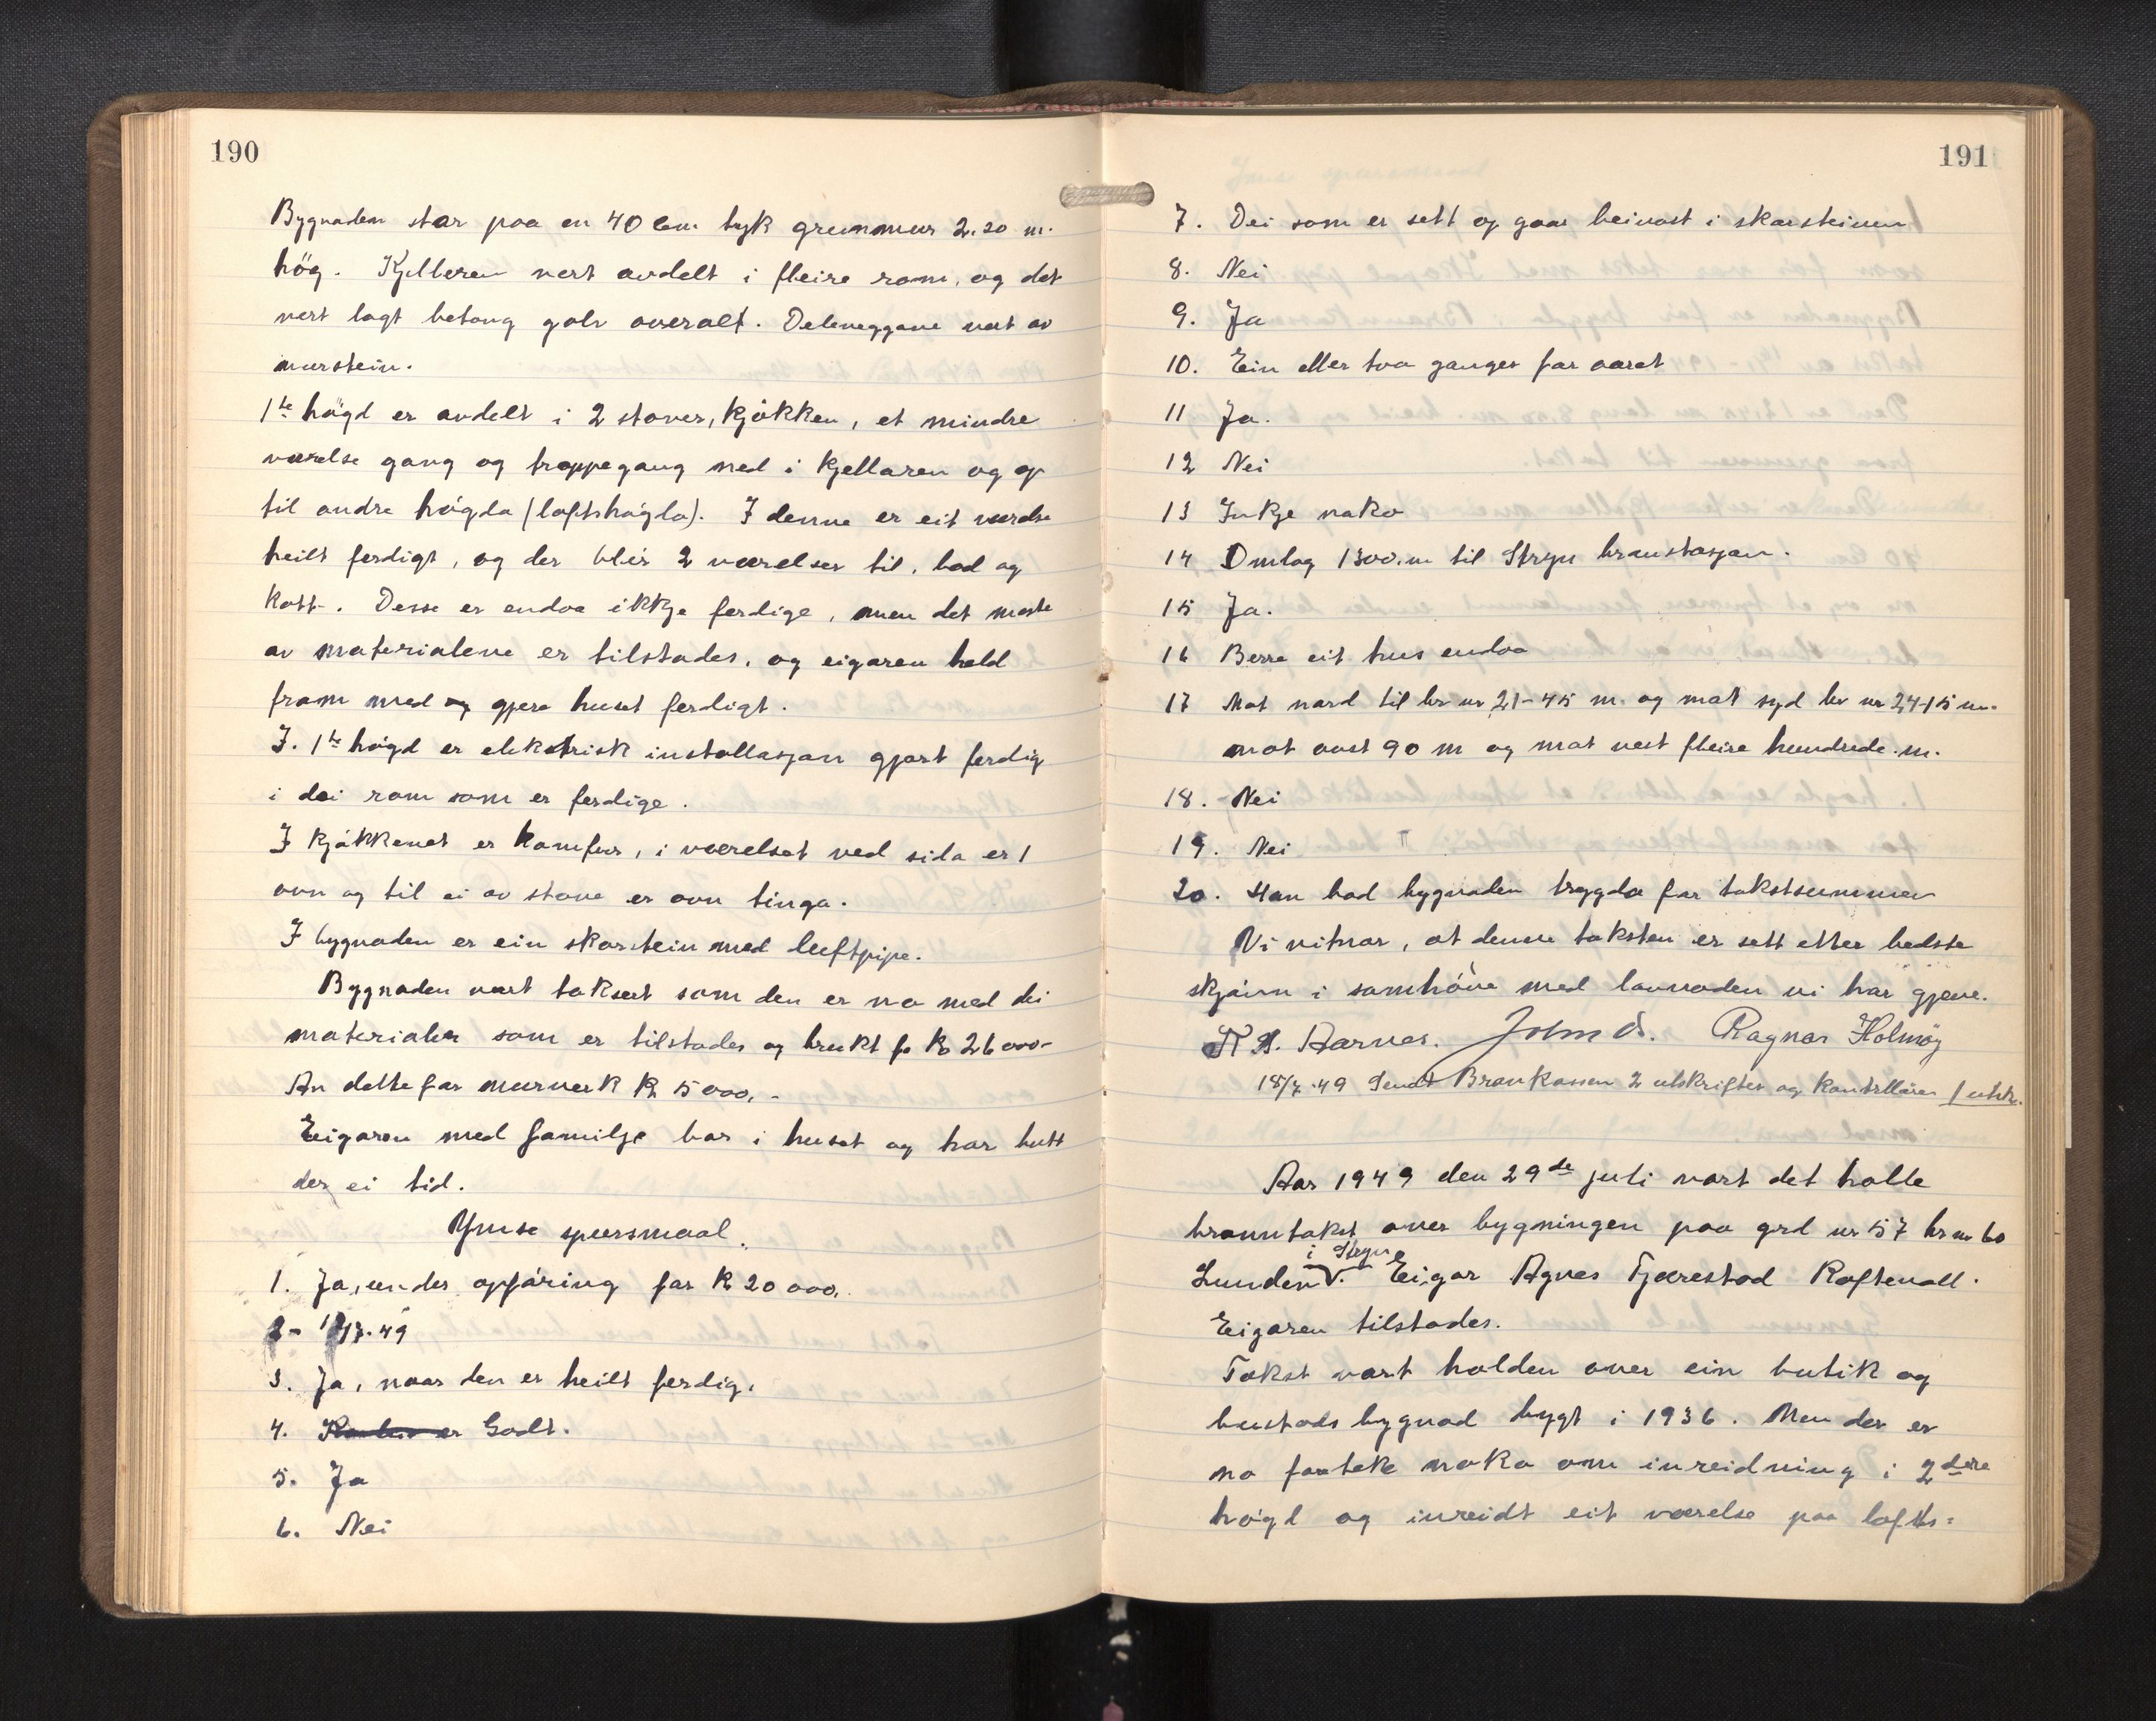 190
Bygnaden star paa en 40 cm. tyk grunnmur 2.20 m.
hög. Kjelleren vert avdelt i fleire rom, og det
vert lagt betong golv overalt. Deleveggane vert av
murstein.
1ste högd er avdelt i 2 stover, kjökken, et mindre
værelse gang og trappegang ned i kjellaren og op
til andre högda (loftshögda). I denne er eit værelse
heilt ferdigt, og der blir 2 værelser til, bad og
kott. Desse er endaa ikkje ferdige, men det meste
av materialene er tilstades, og eigaren held
fram med og gjere huset ferdigt.
I. 1ste högd er elektrisk installasjon gjort ferdig
i dei rom som er ferdige.
I kjökkenet er komfur, i værelset ved sida er 1
ovn og til ei av stove er ovn tinga.
I bygnaden er ein skorstein med luftpipe.
Bygnaden vart taksert som den er no med dei
materialer som er tilstades og brukt for kr 26000-
Av dette for murverk kr 5000,-
Eigaren med familje bor i huset og har butt
der ei tid.
Ymse spursmaal.
1. Ja, under opföring for kr 20000.
2- 1/7.49
3. Ja, naar den er heilt ferdig.
4. er Godt.
5. Ja
6. Nei
191
7. Dei som er sett op gaar beinast i skorsteinen
8. Nei
9. Ja
10. Ein eller two ganger for aaret
11 Ja.
12 Nei
13 Inkje noko
14 Omlag 1300.m til Stryn branstasjon.
15 Ja.
16 Berre eit hus endaa
17 Mot nord til br nr 21-45 m. og mot syd br nr 24-15 m.
mot aust 90 m og mot vest fleire hundrede m.
18. Nei
19. Nei
20. Han bad bygnaden trygda for takstsummen
Vi vitnar, at denne taksten er sett etter bedste
skjönn i samhöve med lovnaden vi har gjeve.
Aarnes. John Ragnar Holmöy
18/7.49 Sendt Brankassen 2 utskrifter og kontrollören 1 utskr.
Aar 1949 den 29de juli vart det halle
branntakst over bygningen paa grd nr 57 br nr 60
i Stryn
Lunden. Eigar Agnes Tjærestad Roftevall.
Eigaren tilstades.
Takst vart holden over ein butik og
bustads bygnad bygt i 1936. Men der er
no foreteke noko om inreidning i 2dre
högd og inreidt eit værelse paa lofts=